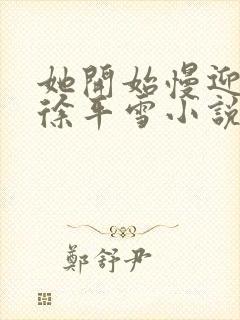 她開始慢迎
徐平雪小說
鄭舒尹